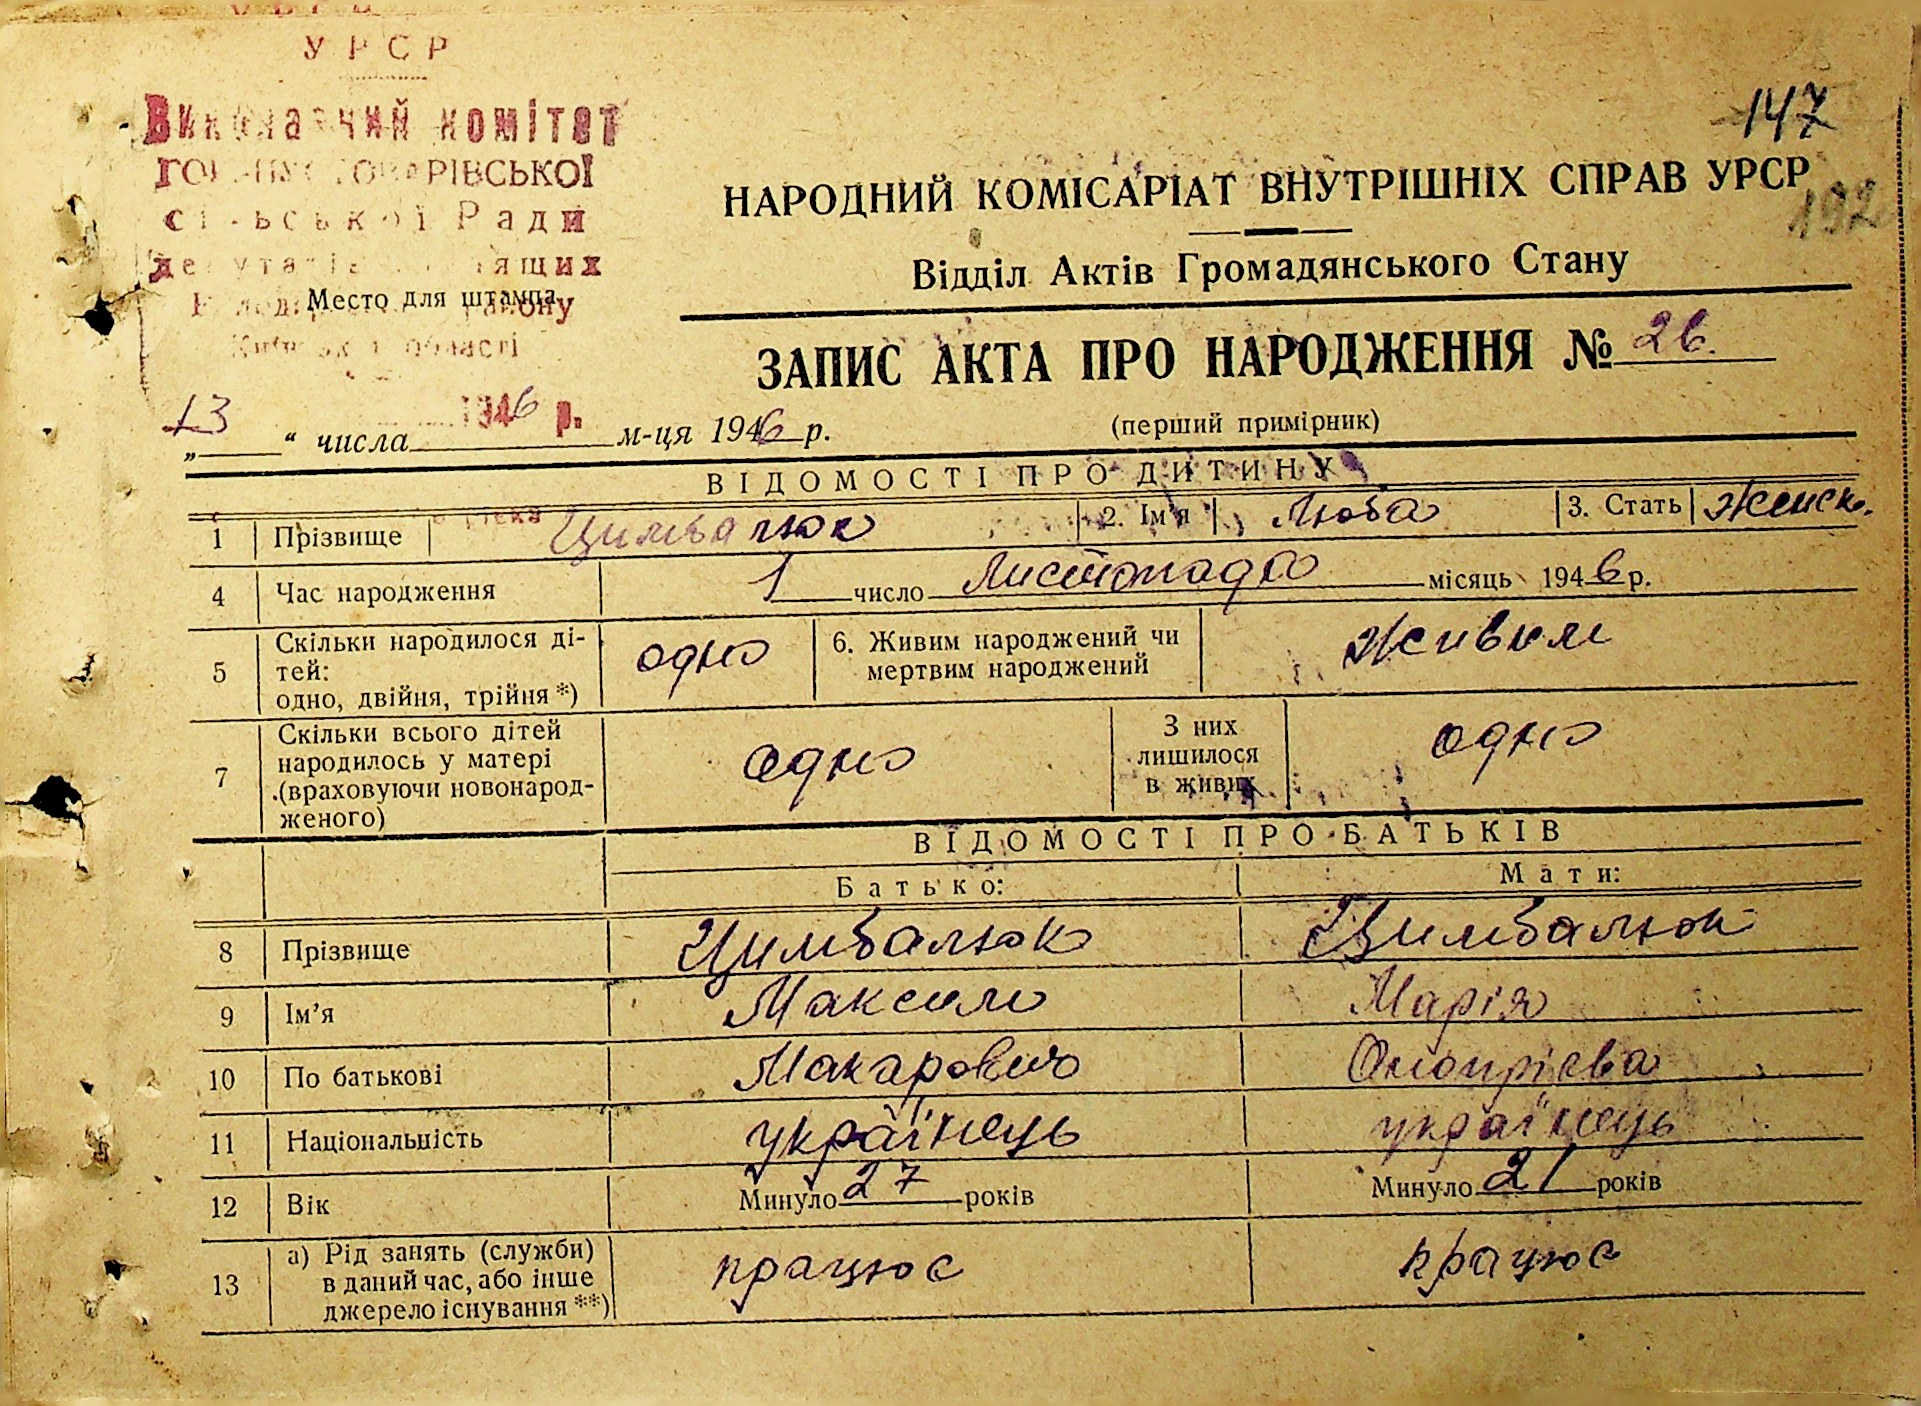 УРСР
Виконавчий комітет
сільської Ради
депутатів трудящих
району
Київської області
Место для штампа
147
192
НАРОДНИЙ КОМІСАРІАТ ВНУТРІШНІХ СПРАВ УРСР
Відділ Актів Громадянського Стану
ЗАПИС АКТА ПРО НАРОДЖЕННЯ № 26.
(перший примірник)
1946 р.
„13“ числа м-ця 1946 р.
ВІДОМОСТІ ПРО ДИТИНУ
1 Прізвище Цимбалюк 2. Ім'я Люба 3. Стать Женск.
4 Час народження 1 число Листопада місяць 1946 р.
5 Скільки народилося ді-
тей:
одно, двійня, трійня *) одно 6. Живим народжений чи
мертвим народжений живим
7 Скільки всього дітей
народилось у матері
(враховуючи новонарод-
женого) одно З них
лишилося
в живих одно
ВІДОМОСТІ ПРО БАТЬКІВ
Батько: Мати:
8 Прізвище Цимбалюк Цимбалюк
9 Ім'я Максим Марія
10 По батькові Макарович Оноприєва
11 Національність українець українець
12 Вік Минуло 27 років Минуло 21 років
13 а) Рід занять (служби)
в даний час, або інше
джерело існування **) працює працює